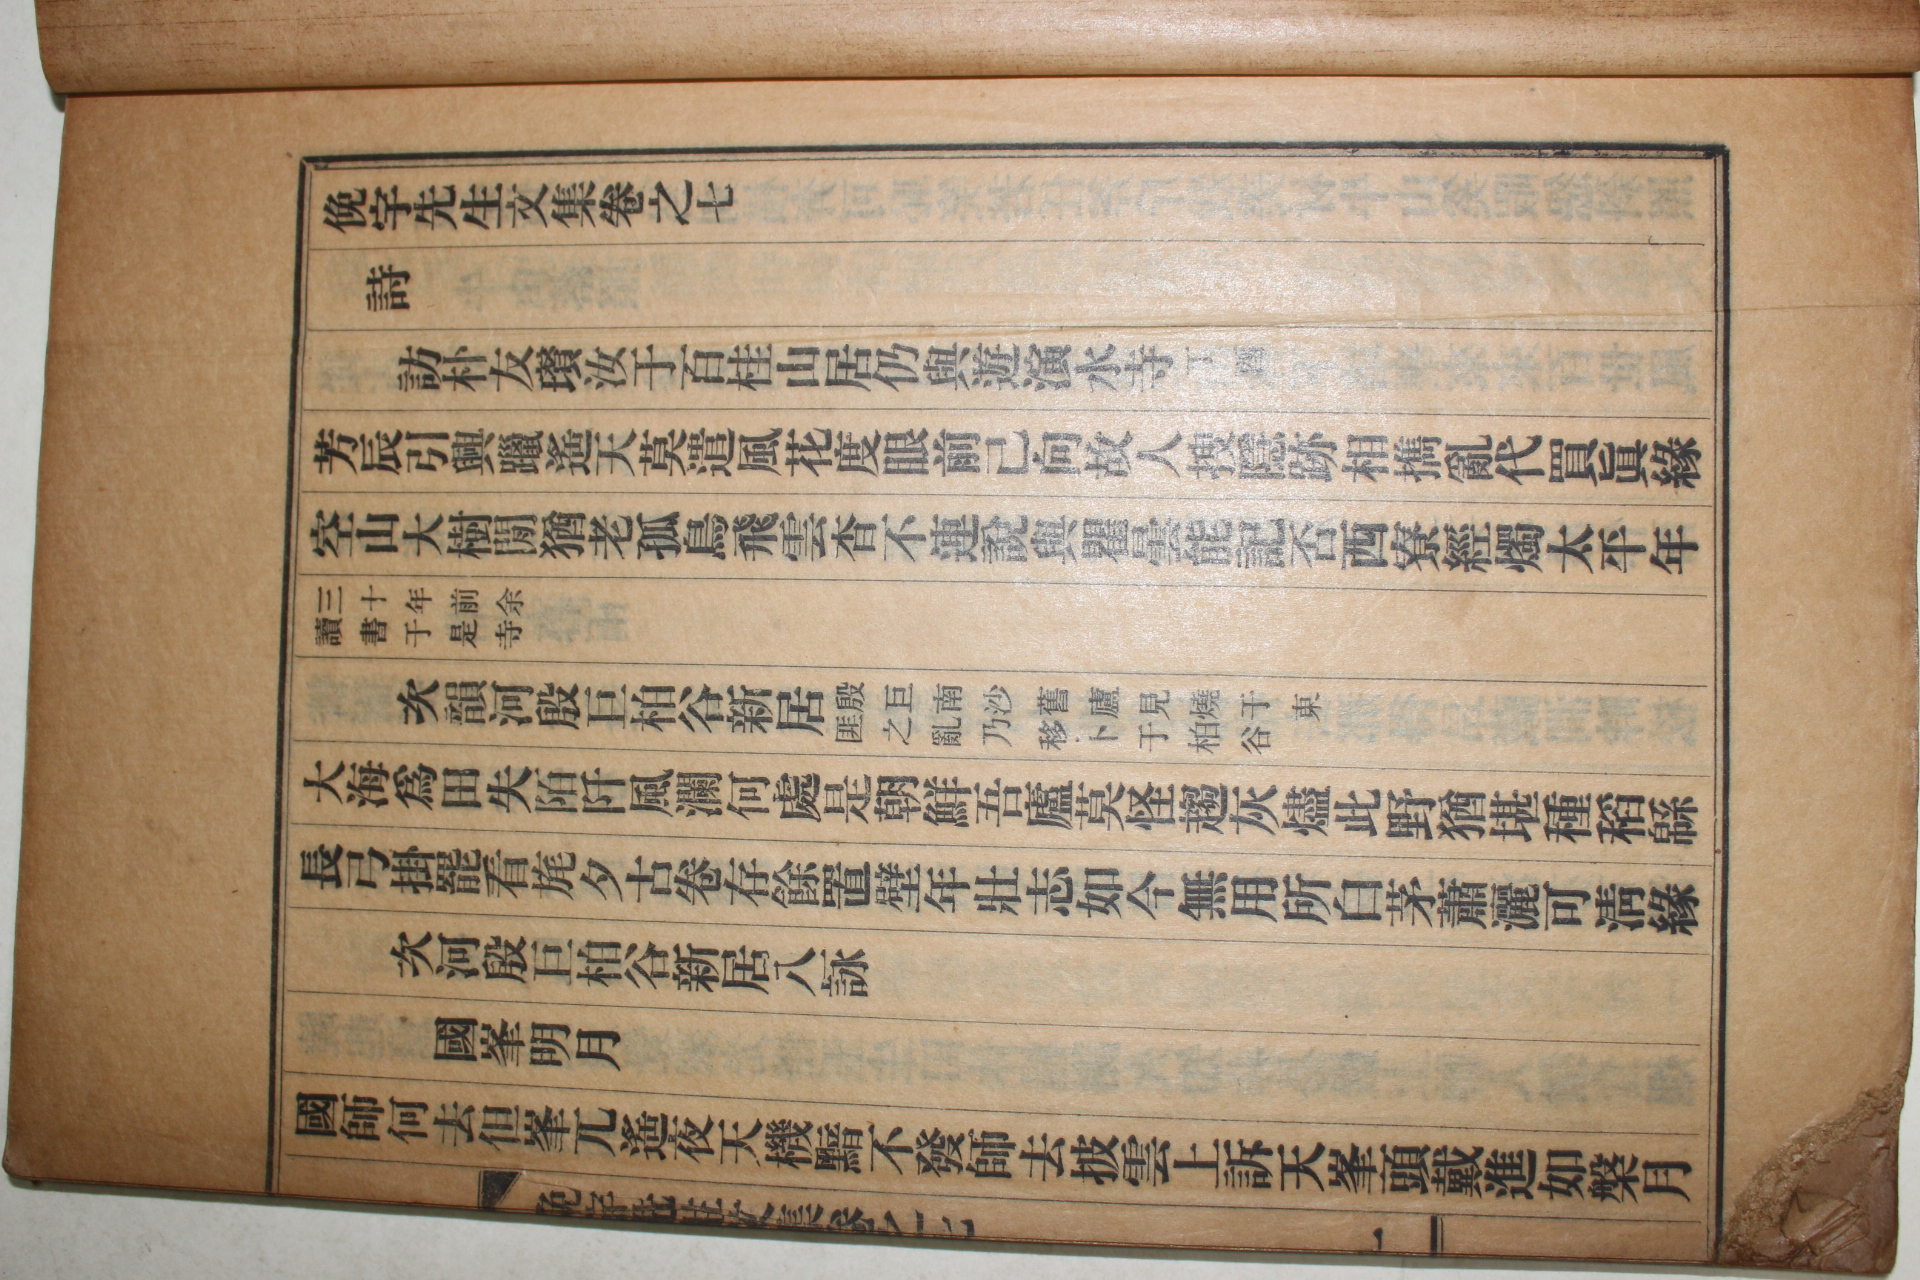 俛宇先生文集卷之七
詩
訪朴友瓚汝于百桂山居仍與遊演水寺 丁酉
芳辰引興躡遙天莫遣風花度眼前已向故人搜隱跡相携亂代買眞緣
空山大樹閒猶老孤鳥飛雲杳不連說與瞿曇能記否西寮經燭太平年
三十年前余
讀書于是寺
次韻河殷巨柏谷新居
殷巨南沙舊廬見燒于東
匪之亂乃移卜于柏谷
大海爲田失陌阡風瀾何處是朝鮮吾廬莫怪趨灰燼此野猶堪種稻緜
長弓掛罷看旄夕古卷存餘置壁年壯志如今無用所白茅蕭灑可淸緣
次河殷巨柏谷新居八詠
國峯明月
國師何去但峯兀遙夜天機黯不發師去披雲上訴天峯頭戴進如槃月
俛宇先生文集卷之七
一